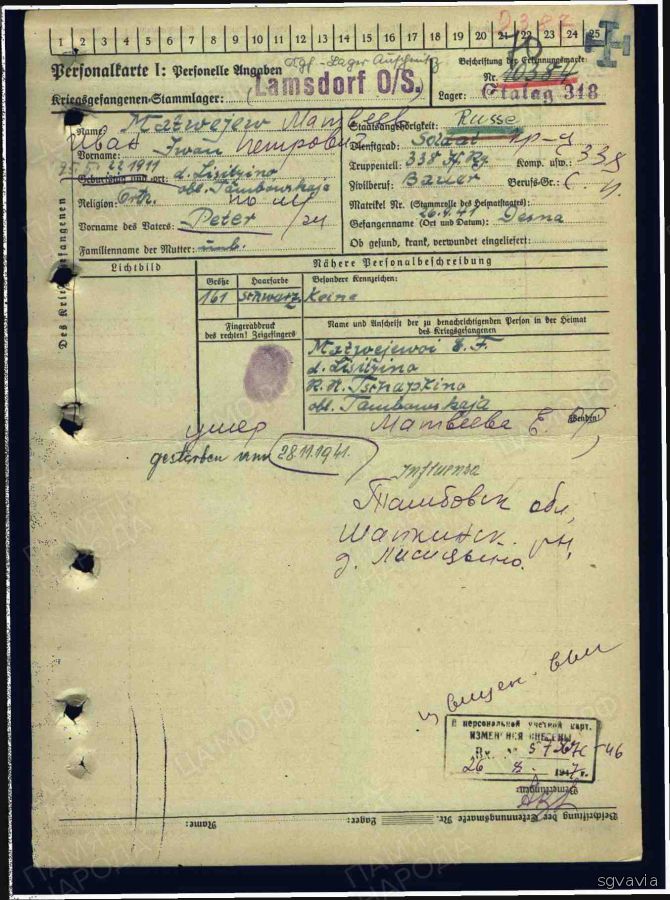 1 2 3 4 5 6 7 8 9 10 11 12 13 14 15 16 17 18 19 20 21 22 23 24 25
Kgf.-Lager Auschwitz
Personalkarte I: Personelle Angaben
Beschriftung der Erkennungsmarke:
Nr. 10384
Kriegsgefangenen-Stammlager: Lamsdorf O/S.
Lager: Stalag 318
Des Kriegsgefangenen
Name: Matwejew Матвеев
Staatsangehörigkeit: Russe
Иван
Vorname: Iwan Петрович
Dienstgrad: Soldat кр-ц
Truppenteil: 338 Komp. usw.: 338
Geburtstag und -ort: 1911 d. Lisitzino
obl. Tambowskaja
Zivilberuf: Bauer Berufs-Gr.:
Religion: Orth.
Matrikel Nr. (Stammrolle des Heimatstaates)
Vorname des Vaters: Peter
Gefangennahme (Ort und Datum): Desna
Familienname der Mutter: unb.
Ob gesund, krank, verwundet eingeliefert:
Lichtbild
Nähere Personalbeschreibung
Größe Haarfarbe Besondere Kennzeichen:
161 schwarz Keine
Fingerabdruck
des rechten! Zeigefingers
Name und Anschrift der zu benachrichtigenden Person in der Heimat
des Kriegsgefangenen
Matwejewoi E. F.
d. Lisitzino
R. N. Tschapkino
obl. Tambowskaja
Wenden!
умер
Матвеева Е.
gestorben am 28.11.1941.
Influenza
Тамбовск обл,
Шапкинск. рн,
д. Лисицыно.
В персональной учетной карт.
ИЗМЕНЕНИЯ ВНЕСЕНЫ
Вх. №
26 194 г.
Bemerkungen:
Beschriftung der Erkennungsmarke Nr. Lager: Name:
ЦАМО РФ
ПАМЯТЬ НАРОДА
sgvavia